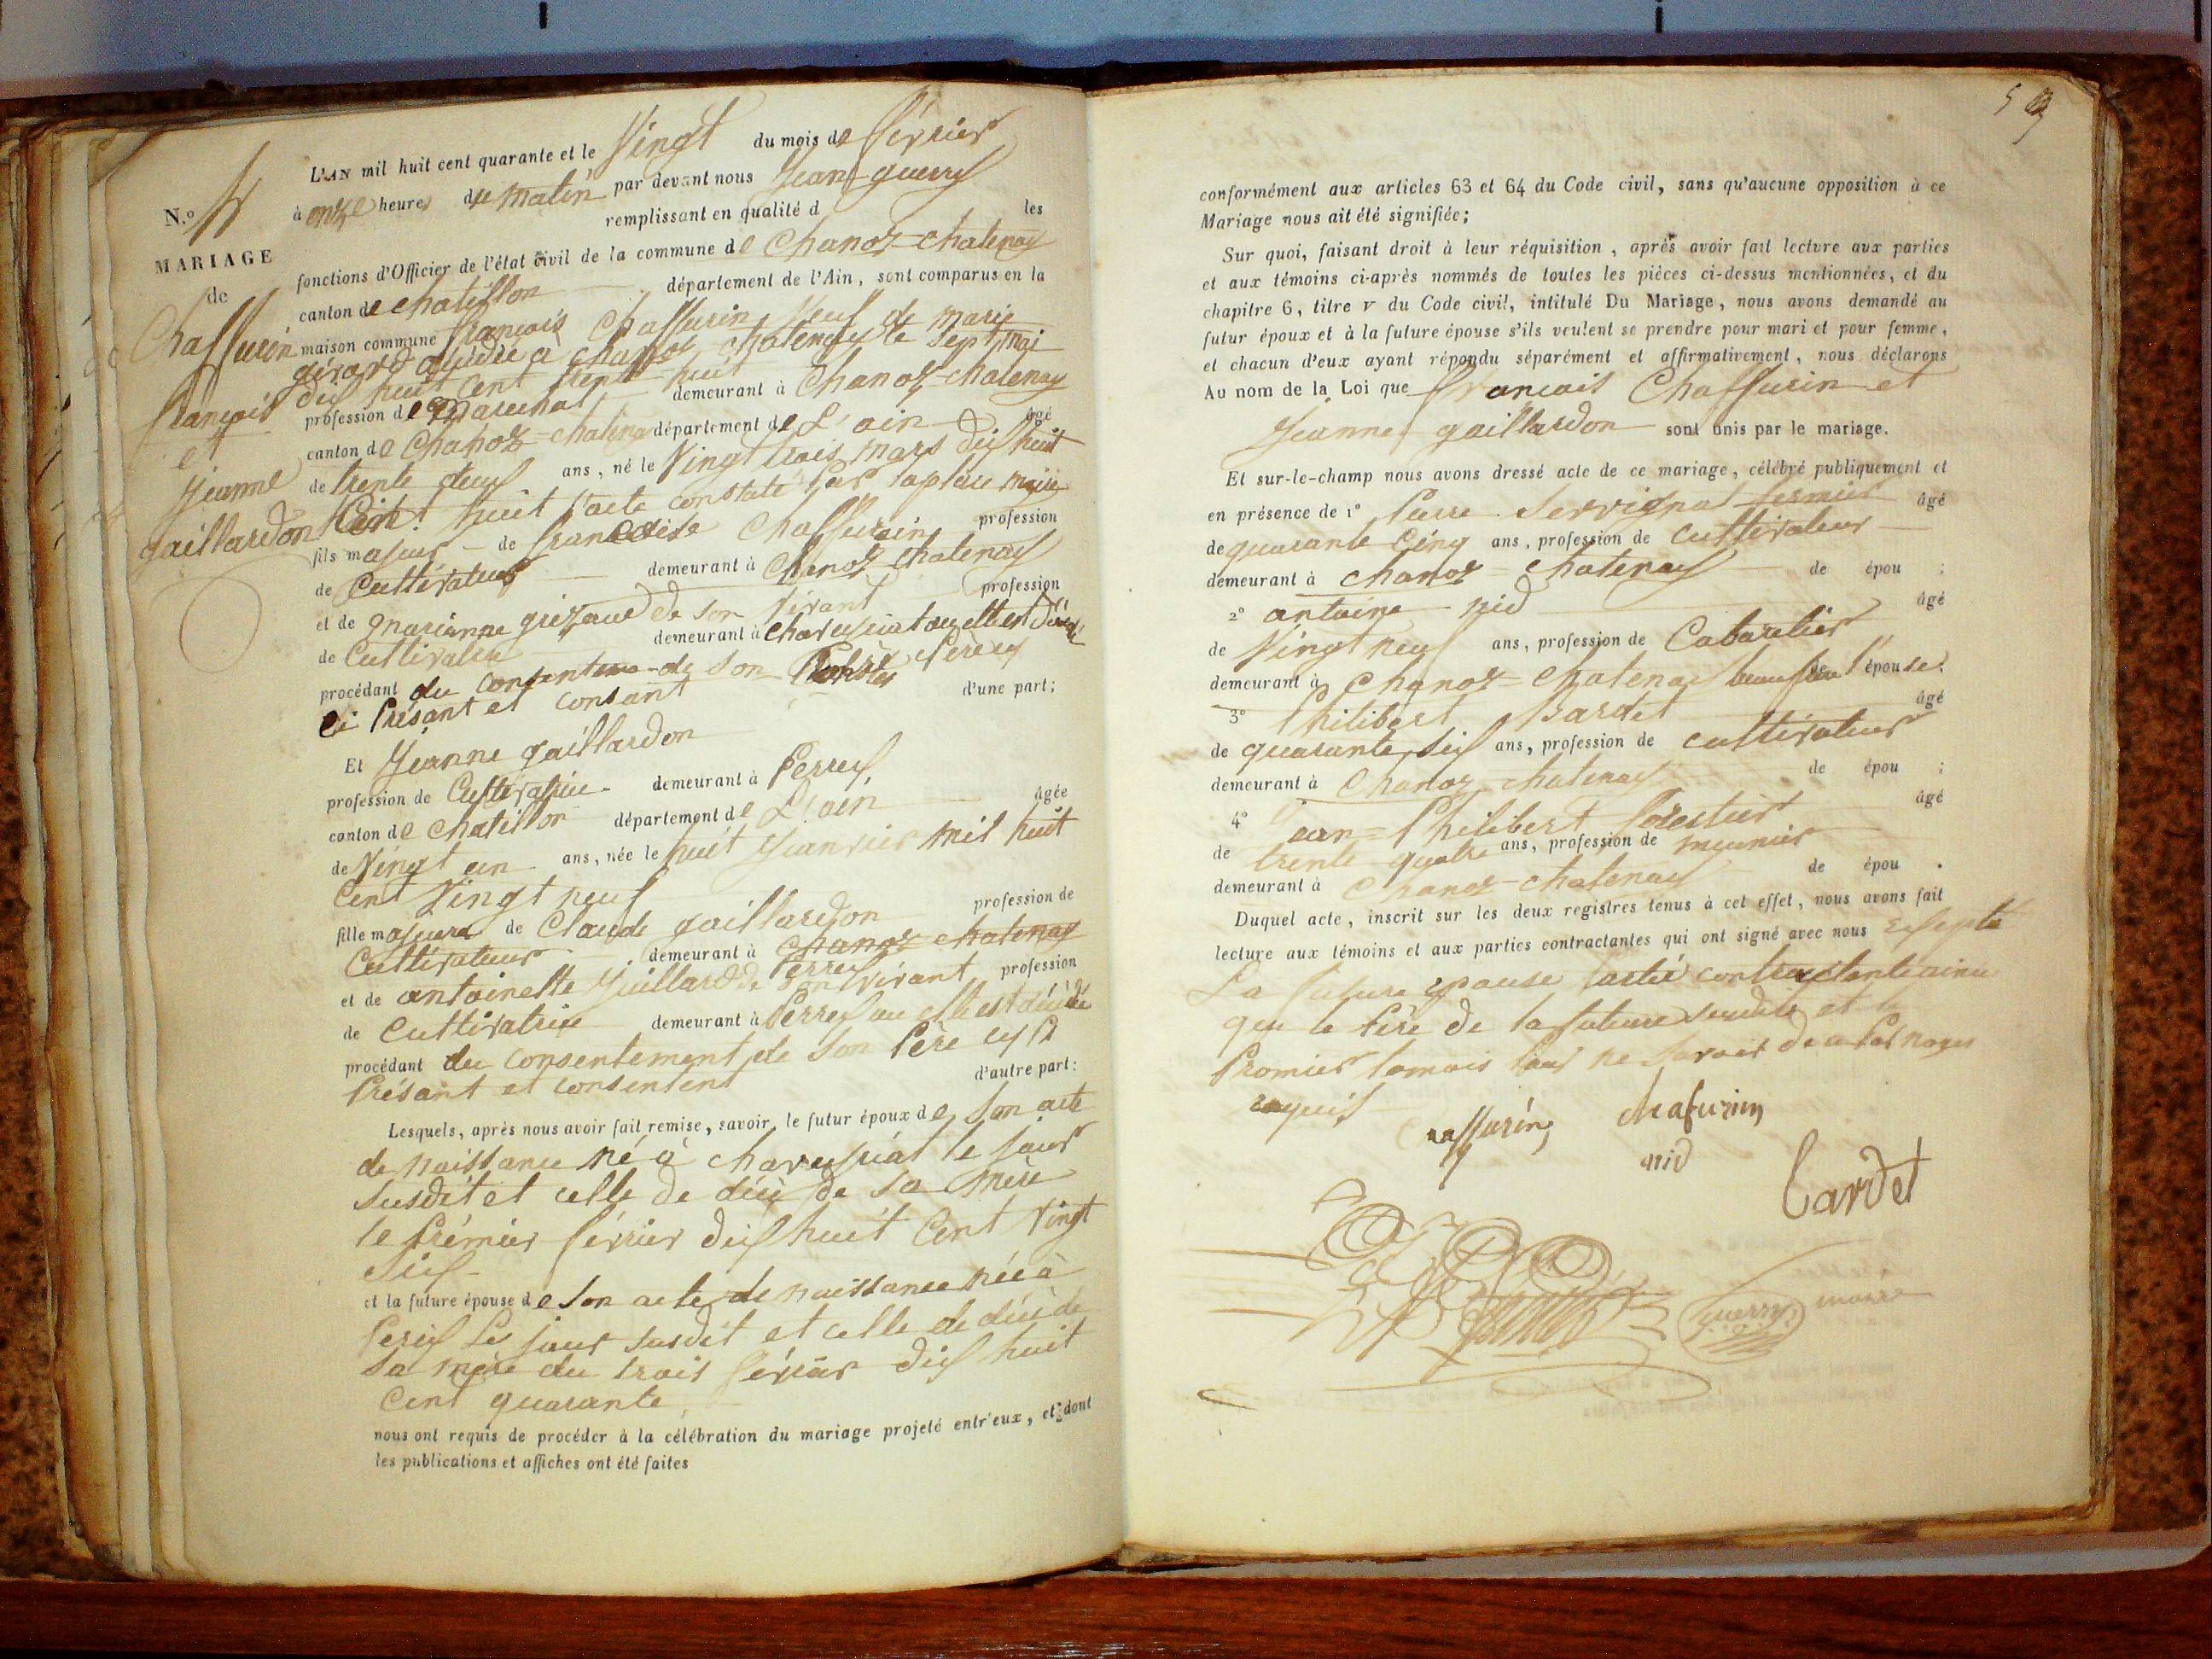 L'AN mil huit cent quarante et le Vingt du mois de février
N.º 4 à onze heures du matin par devant nous Jean guerry
remplissant en qualité d les
MARIAGE fonctions d'Officier de l'état civil de la commune de Chanoz-chatenay
de canton de chatillon département de l'Ain, sont comparus en la
Chaffurin maison commune françois Chaffurin Veuf de marie
girard décédée à chanoz chatenay le Sept mai
françois dix huit cent trente huit
profession de marechal demeurant à Chanoz-chatenay
et canton de Chanoz-chatenay département de L'ain âgé
Jeanne de trente deux ans, né le Vingt trois mars dix huit
gaillardon Cent huit l'acte constaté par
fils majeur de francoise Chaffurin profession
de Cultivateur demeurant à Chanoz chatenay
et de marianne de son vivant profession
de Cultivatrice demeurant à ou elle est
procédant du de son père
ci Présant et consant d'une part;
Et Jeanne gaillardon
profession de Cultivatrice demeurant à Perrex
canton de chatillon département de L'ain âgée
de Vingt un ans, née le huit Janvier mil huit
Cent Vingt neuf
fille majeure de Claude gaillardon profession de
Cultivateur demeurant à chanoz chatenay Perrex
et de antoinette Juillard de son vivant profession
de cultivatrice demeurant à Perrex ou elle est décédé
procédant du consentement de son Père icy
Présant et consentent d'autre part:
Lesquels, après nous avoir fait remise, savoir, le futur époux de son acte
de naissance né à le jour
susdit et celle de décè de sa mère
le prémier février dix huit Cent Vingt
six
et la future épouse de son acte de naissance née à
le jour susdit et celle de décè de
sa mère du trois février dix huit
Cent quarante
nous ont requis de procéder à la célébration du mariage projeté entr'eux, et dont
les publications et affiches ont été faites
conformément aux articles 63 et 64 du Code civil, sans qu'aucune opposition à ce
Mariage nous ait été signifiée;
Sur quoi, faisant droit à leur réquisition, après avoir fait lecture aux parties
et aux témoins ci-après nommés de toutes les pièces ci-dessus mentionnées, et du
chapitre 6, titre V du Code civil, intitulé Du Mariage, nous avons demandé au
futur époux et à la future épouse s'ils veulent se prendre pour mari et pour femme,
et chacun d'eux ayant répondu séparément et affirmativement, nous déclarons
Au nom de la Loi que francois Chaffurin et
Jeanne gaillardon sont unis par le mariage.
Et sur-le-champ nous avons dressé acte de ce mariage, célébré publiquement et
en présence de 1º Pierre Servignat fermier âgé
de quarante Cinq ans, profession de cultivateur
demeurant à chanoz-chatenay de épou ;
2º antoine nid âgé
de Vingt neuf ans, profession de Cabaretier
demeurant à Chanoz-Chatenay beau frère de l'épouse.
3º Philibert Bardet âgé
de quarante six ans, profession de cultivateur
demeurant à Chanoz-chatenay de épou ;
4º Jean-Philibert forestier âgé
de trente quatre ans, profession de meunier
demeurant à Chanoz-chatenay de épou .
Duquel acte, inscrit sur les deux registres tenus à cet effet, nous avons fait
lecture aux témoins et aux parties contractantes qui ont signé avec nous Excepté
La future epouse partie contractente ainci
que le Père de la future et le
Promier tomois pour ne savoir de a
requis
chafurin
nid
bardet
guerry maire